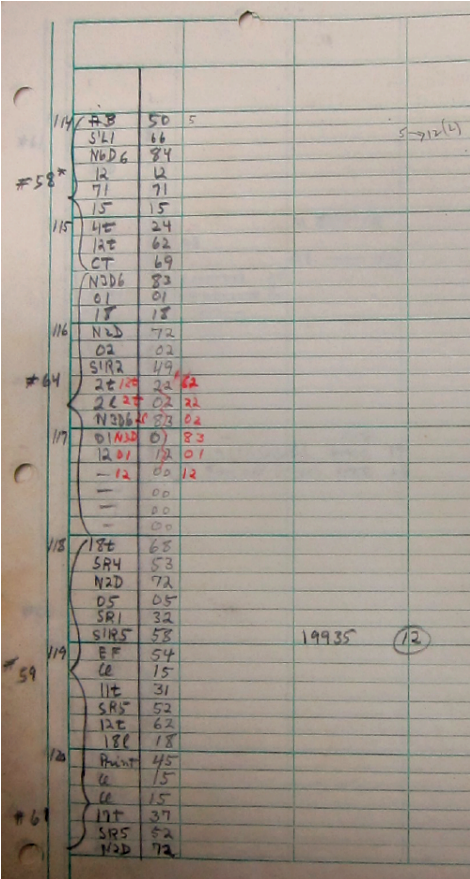 114 AB 50 5
S'L1 66 5→12(L)
N6D6 84
12 12
#58* 71 71
15 15
115 4t 24
12t 62
CT 69
N3D6 83
01 01
18 18
116 N2D 72
02 02
S'R2 49
#64 2t 12t 22 62
2l 2t 02 22
N3D6 2l 83 02
117 01 N3D 01 83
12 01 12 01
— 12 00 12
— 00
— 00
— 00
118 18t 68
SR4 53
N2D 72
05 05
SR1 32
S'1R5 58 19935 12
119 EF 54
#59 Cl 15
11t 31
SR5 52
12t 62
18l 18
120 Print 45
Cl 15
Cl 15
#6 17t 37
SR5 52
N2D 72